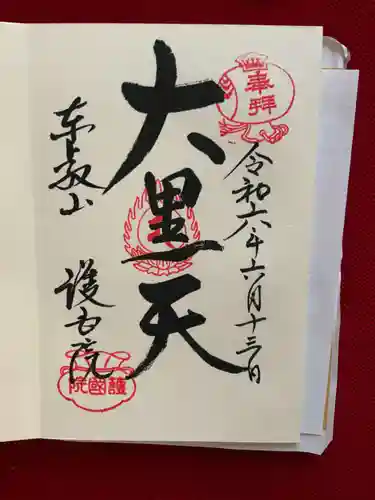 奉拝
令和六年六月十三日
大黒天
東叡山 護国院
護國院